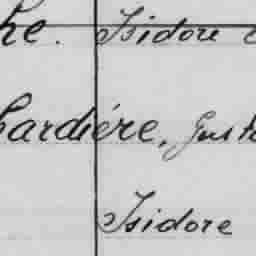 he. Isidore
hardiére, Gust
Isidore